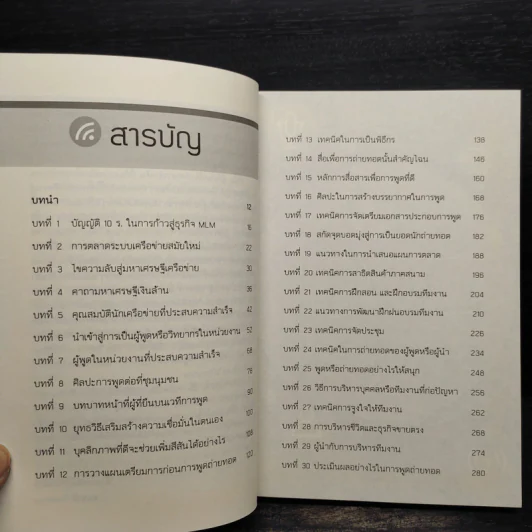 สารบัญ
บทนำ 12
บทที่ 1 บัญญัติ 10 ร. ในการก้าวสู่ธุรกิจ MLM 16
บทที่ 2 การตลาดระบบเครือข่ายสมัยใหม่ 22
บทที่ 3 ไขความลับสู่มหาเศรษฐีเครือข่าย 30
บทที่ 4 คาถามหาเศรษฐีเงินล้าน 36
บทที่ 5 คุณสมบัตินักเครือข่ายที่ประสบความสำเร็จ 42
บทที่ 6 นำเข้าสู่การเป็นผู้พูดหรือวิทยากรในหน่วยงาน 52
บทที่ 7 ผู้พูดในหน่วยงานที่ประสบความสำเร็จ 68
บทที่ 8 ศิลปะการพูดต่อที่ชุมนุมชน 78
บทที่ 9 บทบาทหน้าที่ผู้ที่ยืนบนเวทีการพูด 90
บทที่ 10 ยุทธวิธีเสริมสร้างความเชื่อมั่นในตนเอง 100
บทที่ 11 บุคลิกภาพที่ดีจะช่วยเพิ่มสีสันได้อย่างไร 108
บทที่ 12 การวางแผนเตรียมการก่อนการพูดถ่ายทอด 120
บทที่ 13 เทคนิคในการเป็นพิธีกร 138
บทที่ 14 สื่อเพื่อการถ่ายทอดนั้นสำคัญไฉน 148
บทที่ 15 หลักการสื่อสารเพื่อการพูดที่ดี 160
บทที่ 16 ศิลปะในการสร้างบรรยากาศในการพูด 168
บทที่ 17 เทคนิคการจัดเตรียมเอกสารประกอบการพูด 176
บทที่ 18 สกัดจุดบอดมุ่งสู่การเป็นยอดนักถ่ายทอด 182
บทที่ 19 แนวทางในการนำเสนอแผนการตลาด 188
บทที่ 20 เทคนิคการสาธิตสินค้าภาคสนาม 196
บทที่ 21 เทคนิคการฝึกสอน และฝึกอบรมทีมงาน 204
บทที่ 22 แนวทางการพัฒนาฝึกฝนอบรมทีมงาน 210
บทที่ 23 เทคนิคการจัดประชุม 226
บทที่ 24 เทคนิคในการถ่ายทอดของผู้พูดหรือผู้นำ 234
บทที่ 25 พูดหรือถ่ายทอดอย่างไรให้สนุก 246
บทที่ 26 วิธีการบริหารบุคคลหรือทีมงานที่ก่อปัญหา 256
บทที่ 27 เทคนิคการจูงใจให้ทีมงาน 262
บทที่ 28 การบริหารชีวิตและธุรกิจขายตรง 268
บทที่ 29 ผู้นำกับการบริหารทีมงาน 274
บทที่ 30 ประเมินผลอย่างไรในการพูดถ่ายทอด 280